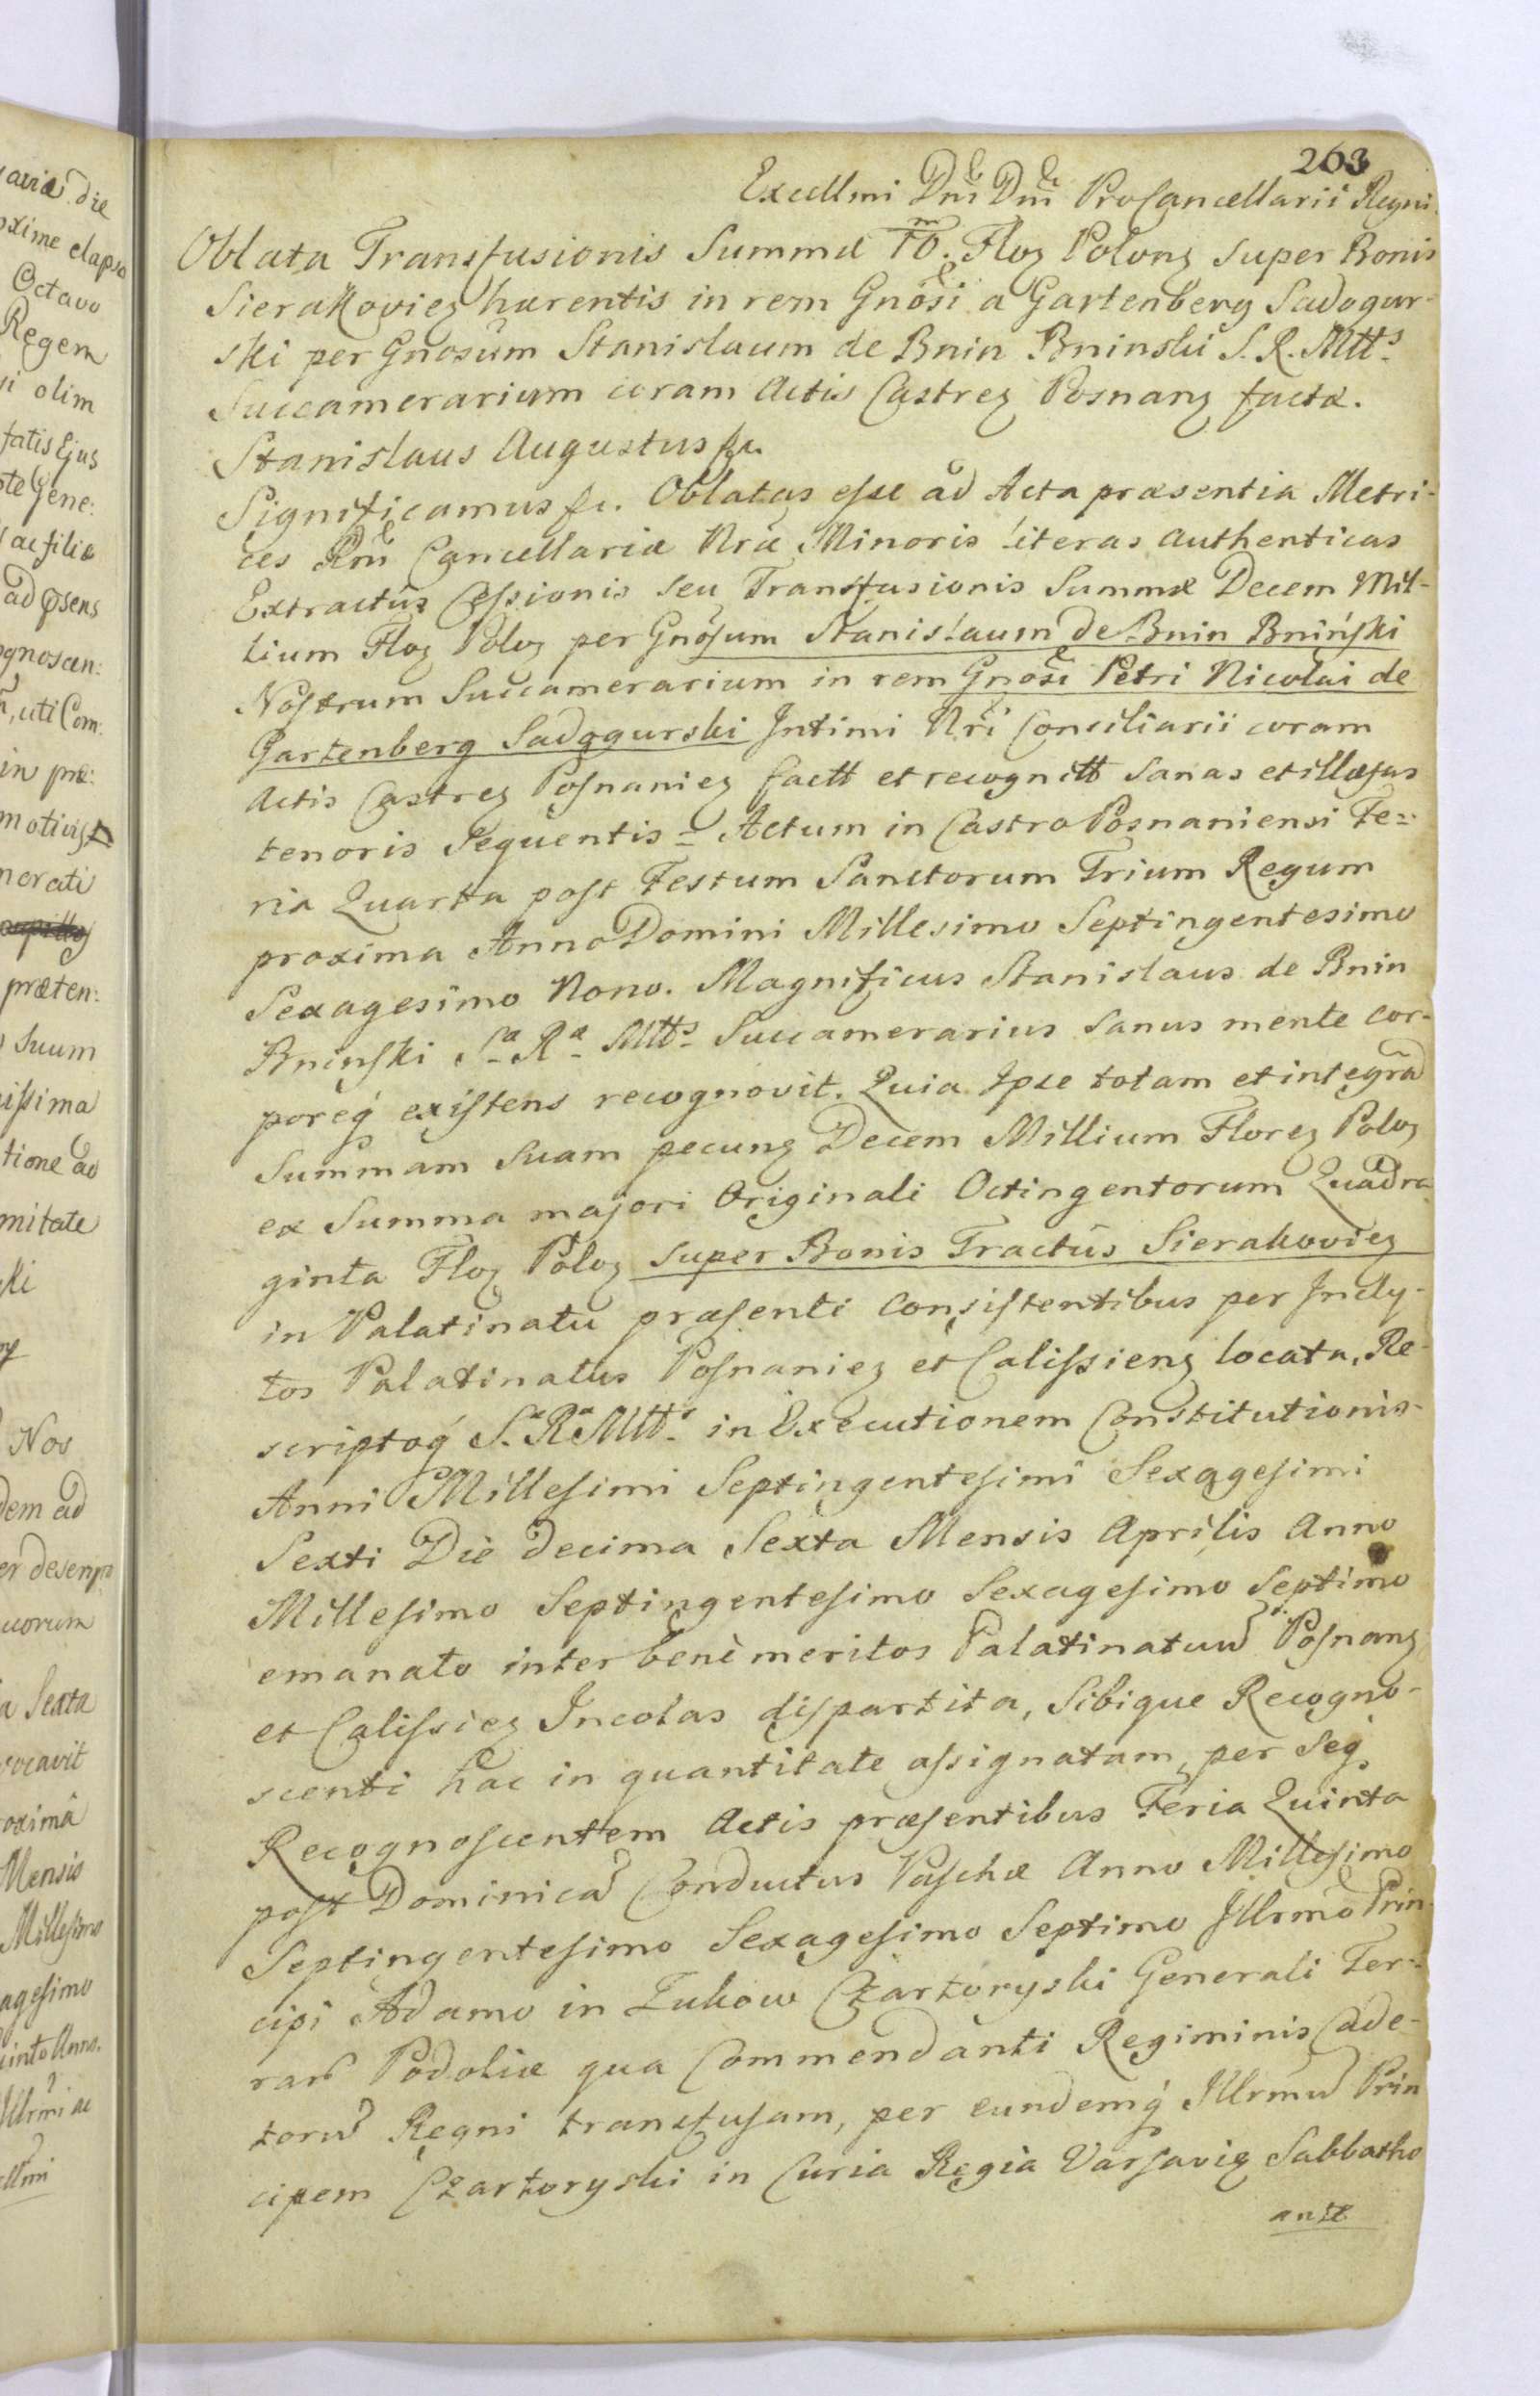 263
Excellmi Dni Dni ProCancellarii Regni.
Oblata Transfusionis Summæ 10.m Floz Polonz super Bonis
Sierakoviez hærentis in rem Gnosi a Gartenberg Sadogur-
ski per Gnosum Stanislaum de Bnin Bninski S. R. Mtts
Succamerarium coram Actis Castrez Posnanz factæ.
Stanislaus Augustus &c.
Significamus &c. Oblatas esse ad Acta præsentia Metri-
ces Rni Cancellariæ Nræ Minoris literas authenticas
Extractus Cessionis seu Transfusionis Summæ Decem Mil-
lium Floz Poloz per Gnosum Stanislaum de Bnin Bniński
Nostrum Succamerarium in rem Gnosi Petri Nicolai de
Gartenberg Sadogurski Intimi Nri Consiliarii coram
Actis Castrez Posnaniez factt et recognitt sanas et illæsas
tenoris sequentis = Actum in Castro Posnaniensi Fe=
ria Quarta post Festum Sanctorum Trium Regum
proxima Anno Domini Millesimo Septingentesimo
Sexagesimo Nono. Magnificus Stanislaus de Bnin
Bninski Sa Ra Mtts Succamerarius sanus mente cor-
poreq existens recognovit. Quia Ipse totam et integra
Summam suam pecunz Decem Millium Florez Poloz
ex Summa majori Originali Octingentorum Quadra
ginta Floz Poloz super Bonis Tractus Sierakoviez
in Palatinatu præsenti consistentibus per Incly-
tos Palatinatus Posnaniez et Calissienz locata, Re-
scriptoq S. Ra Mtts in Executionem Constitutionis
Anni Millesimi Septingentesimi Sexagesimi
Sexti Die decima Sexta Mensis Aprilis Anno
Millesimo Septingentesimo Sexagesimo Septimo
emanato inter benè meritos Palatinatuu Posnanz
et Calissiez Incolas dispartita, Sibique Recogno-
scenti hac in quantitate assignatam, per seq
Recognoscentem Actis præsentibus Feria Quinta
post Dominica Conductus Paschæ Anno Millesimo
Septingentesimo Sexagesimo Septimo Illrmo Prin-
cipi Adamo in Zukow Czartoryski Generali Ter=
raru Podoliæ qua Commendanti Regiminis Cade-
toru Regni transfusam, per eundemq Illrmu Prin
cipem Czartoryski in Curia Regia Varsaviæ Sabbatho
ante